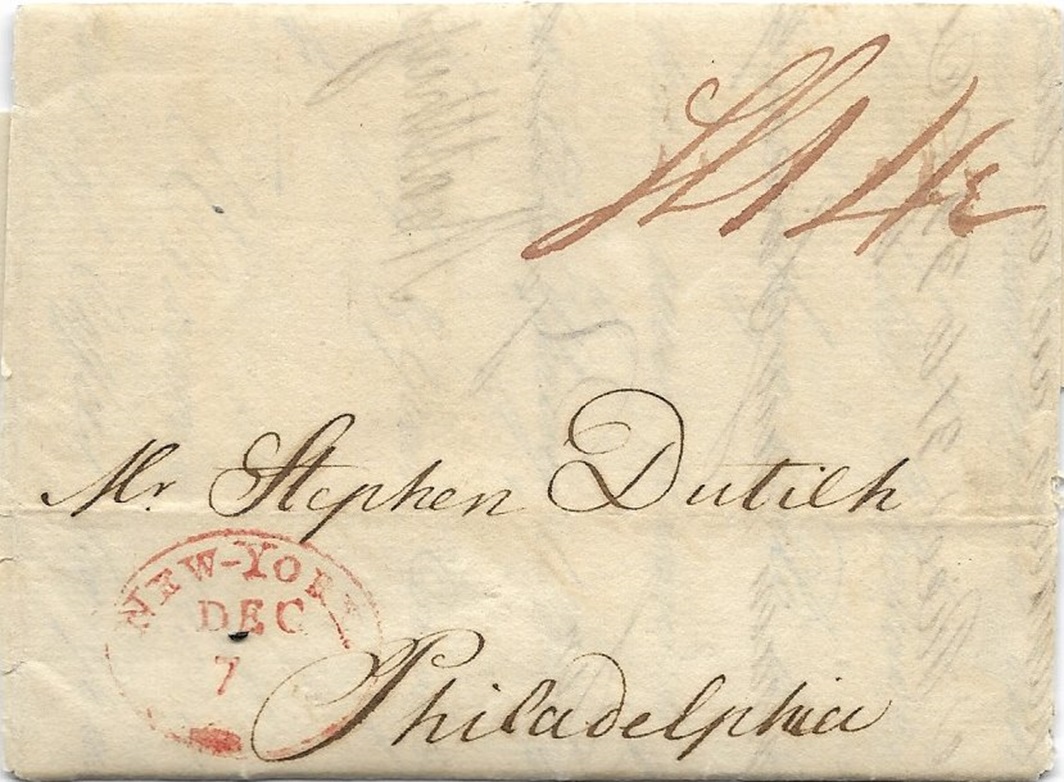 Mr. Stephen Dutilh
NEW-YORK
DEC
7
Philadelphia